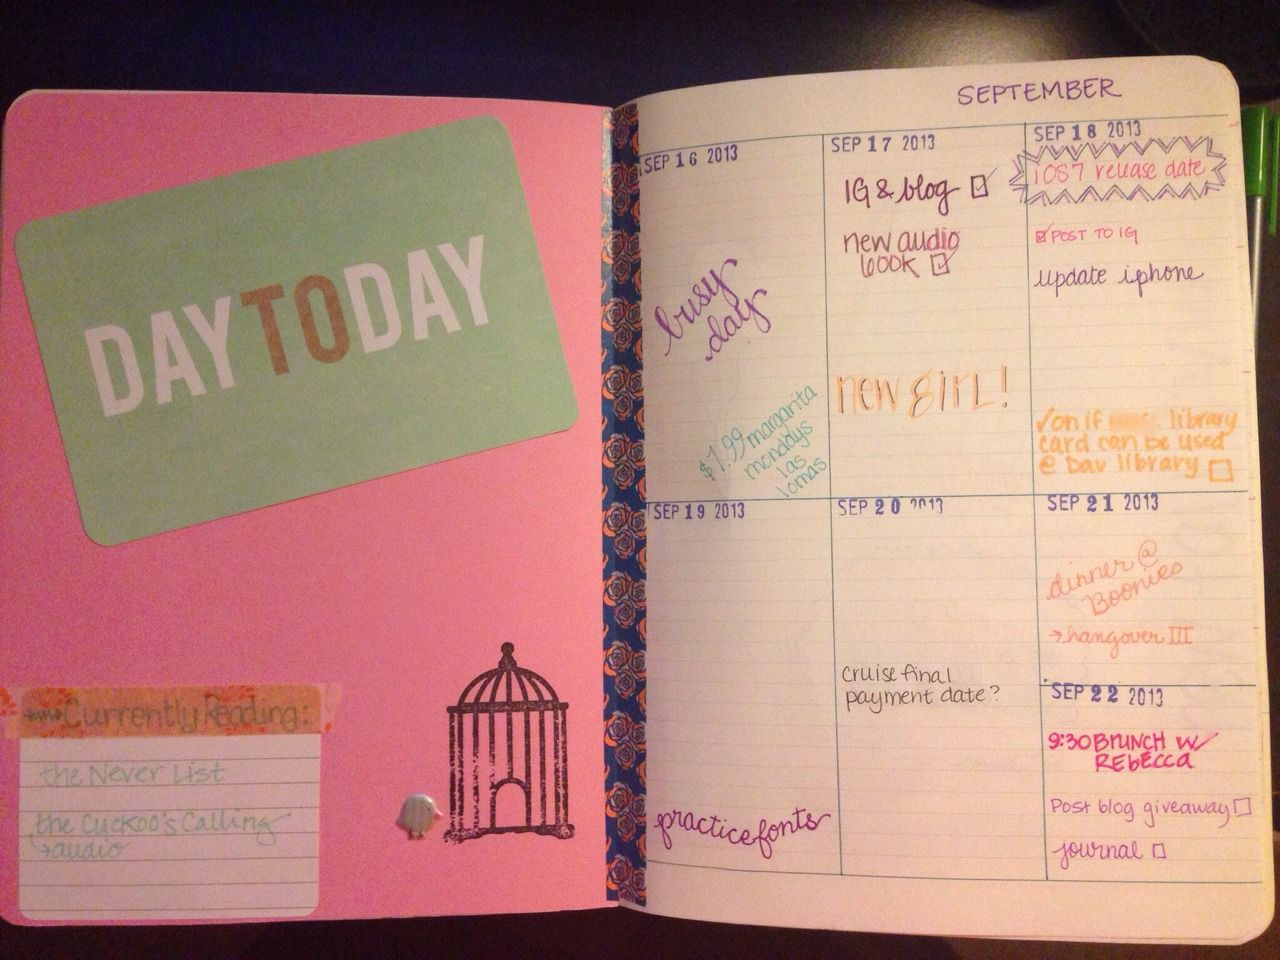 DAYTODAY
Currently Reading:
the Never List
the Cuckoo's Calling
→audio
SEPTEMBER
SEP 16 2013
busy
day
$1.99 margarita
mondays
las
lomas
SEP 17 2013
IG & blog
new audio
book
new girl!
SEP 18 2013
iOS7 release date
POST TO IG
update iphone
√on if library
card can be used
@ Dav library
SEP 19 2013
practice fonts
SEP 20 2013
cruise final
payment date?
SEP 21 2013
dinner @
Boonies
→hangover III
SEP 22 2013
9:30 BRUNCH w/
REbECCA
Post blog giveaway
journal